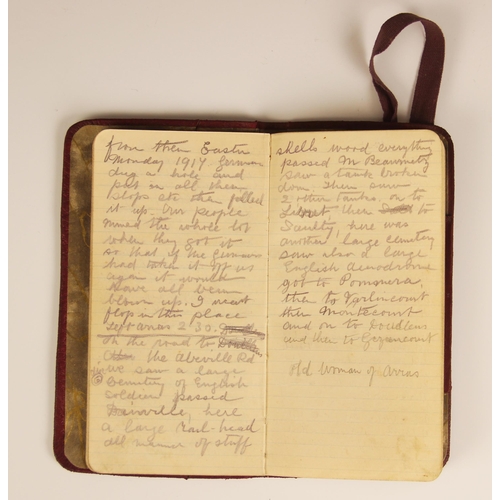 from them Easter
Monday 1917 German
dug a hole and
put in all their
slops etc then filled
it up. Our people
mined the whole lot
when they got it
so that if the Germans
had taken it off us
again it would
have all been
blown up. I must
flop in this place
Left Arras 2.30.
on the road to Doullens
the Abeville Rd
we saw a large
Cemetery of English
soldiers passed
Dainville, here
a large rail-head
all manner of stuff
shells wood everything
passed M Beaumetz
saw a tank broken
down. Then saw
2 other tanks. on to
then to
Saulty, here was
another large cemetery
saw also a large
English aerodrome
got to Pommera,
then to
then Montecourt
and on to Doullens
and then to Gezaincourt
Old Woman of Arras